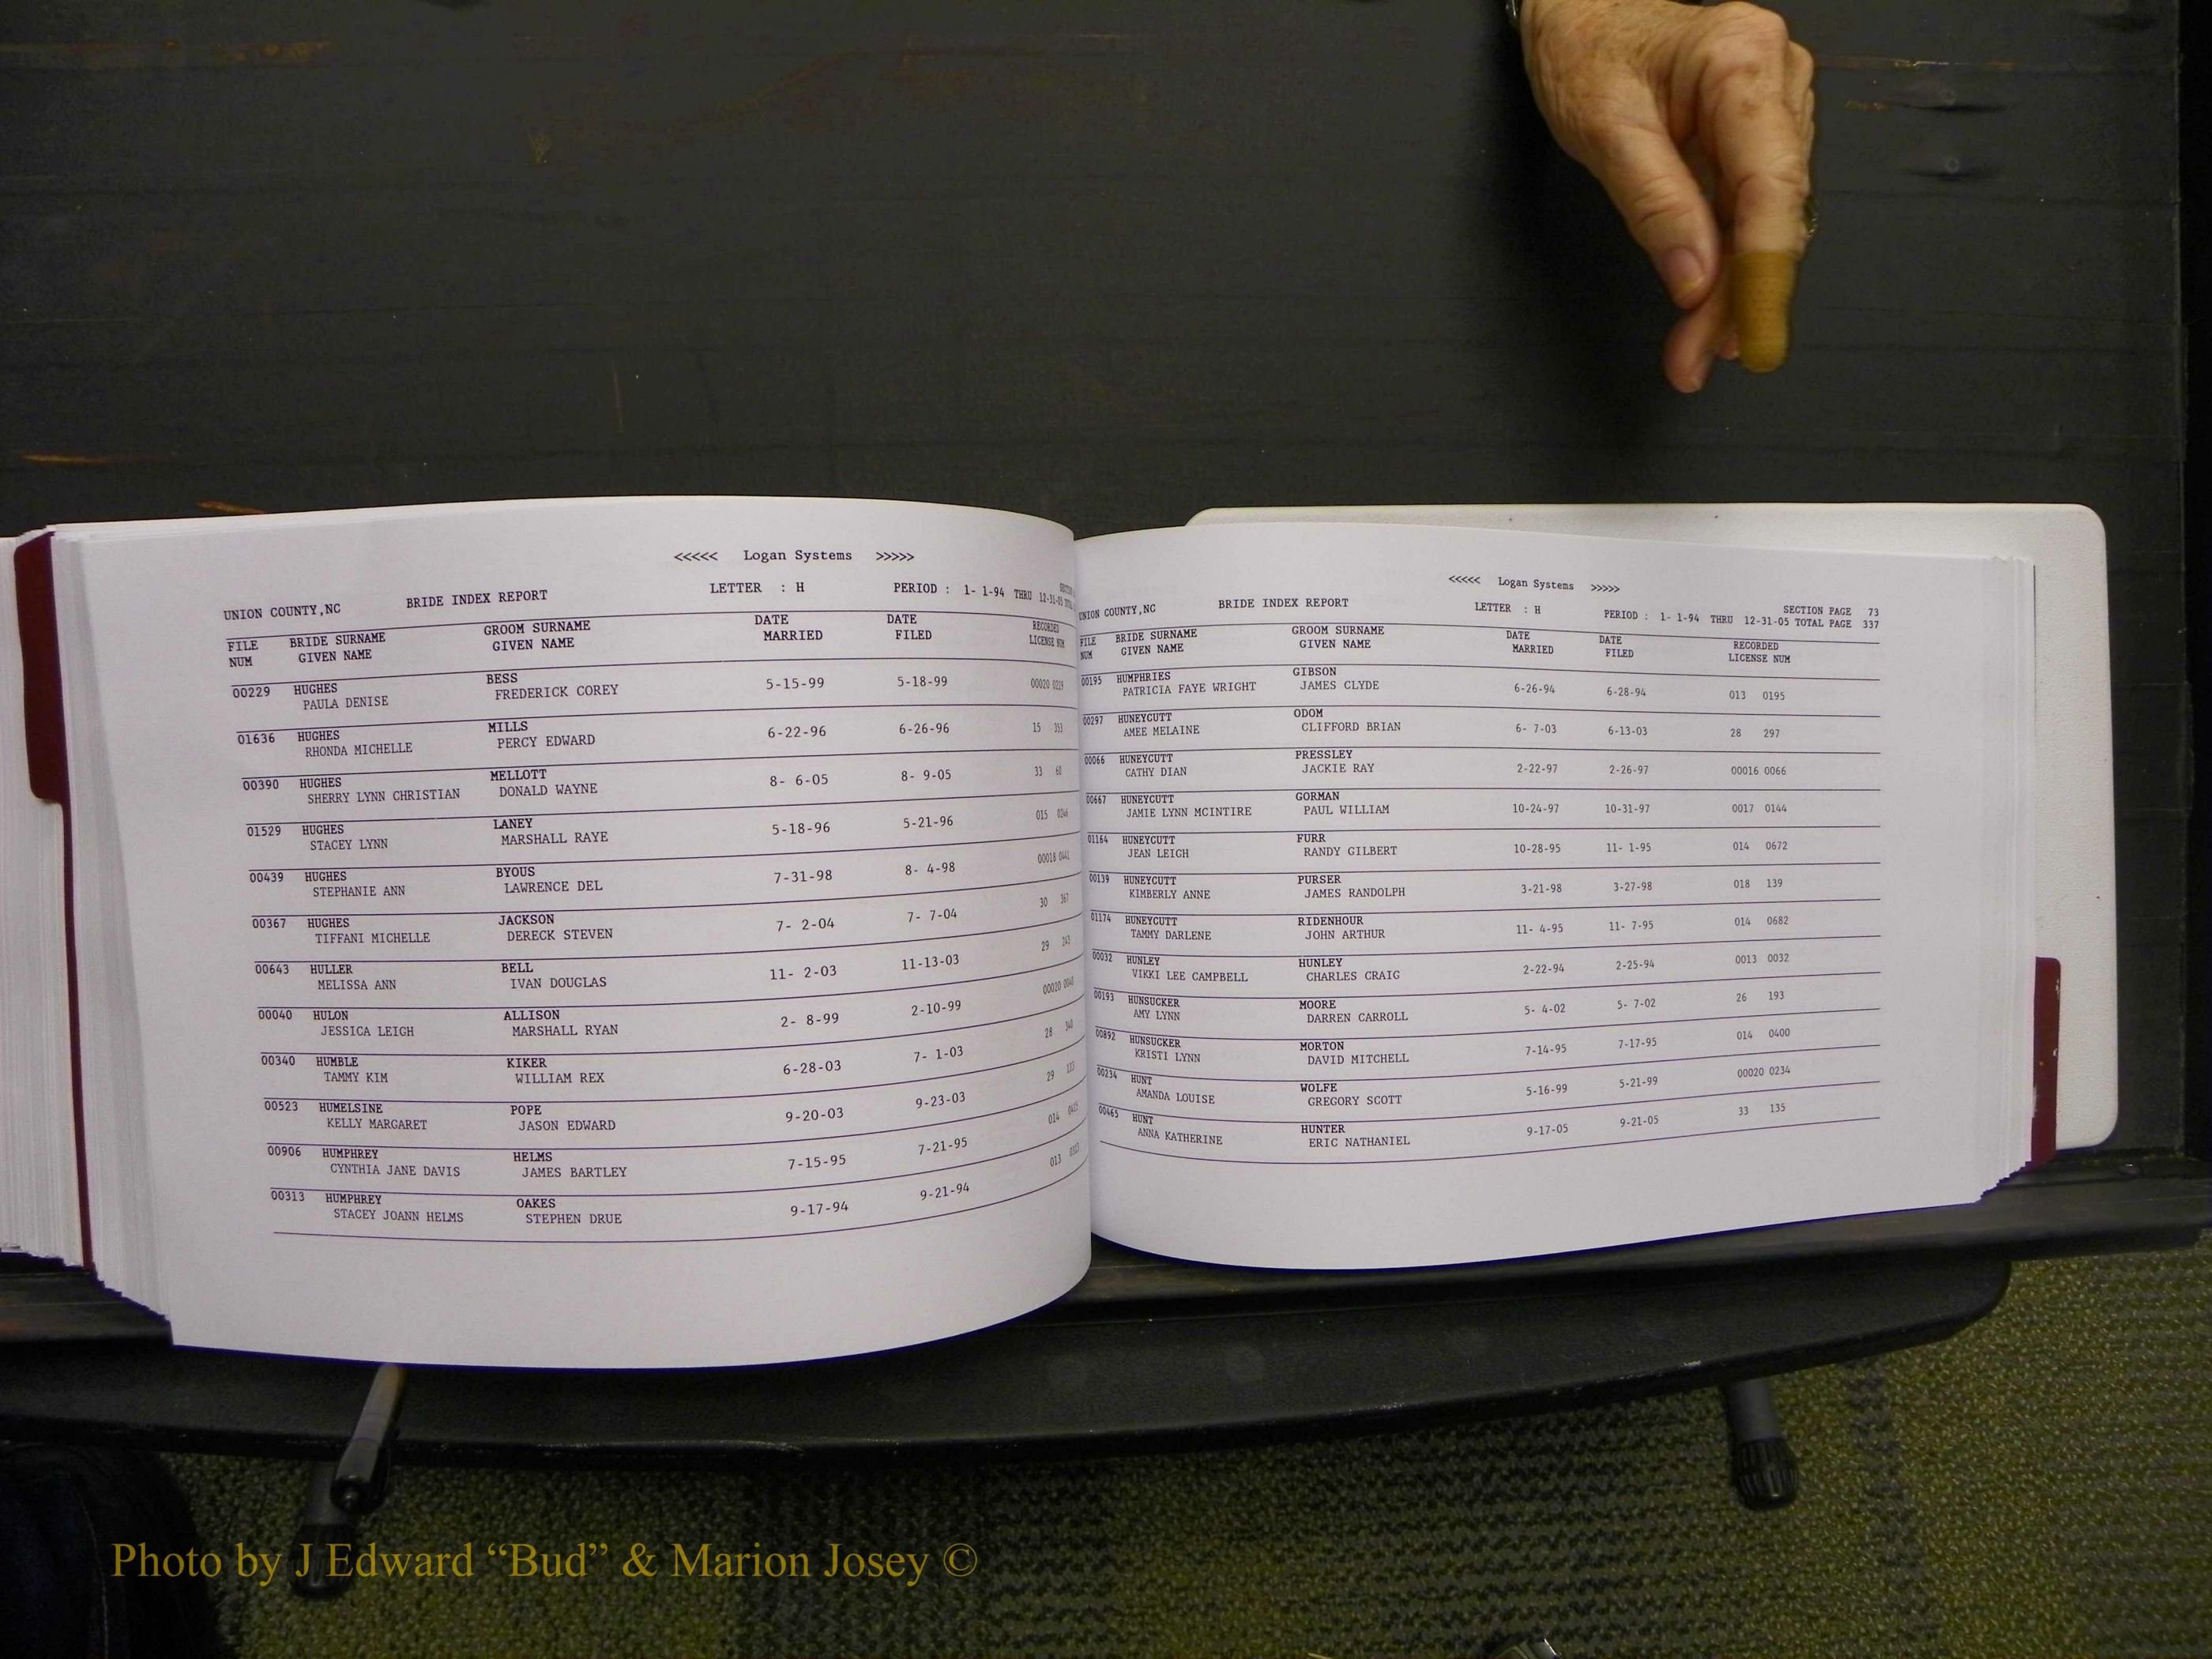 <<<<< Logan Systems >>>>>
UNION COUNTY,NC BRIDE INDEX REPORT LETTER : H PERIOD : 1- 1-94 THRU 12-31-05
FILE BRIDE SURNAME GROOM SURNAME DATE DATE RECORDED
NUM GIVEN NAME GIVEN NAME MARRIED FILED LICENSE NUM
00229 HUGHES BESS 5-15-99 5-18-99 00020 0229
PAULA DENISE FREDERICK COREY
01636 HUGHES MILLS 6-22-96 6-26-96 15 353
RHONDA MICHELLE PERCY EDWARD
00390 HUGHES MELLOTT 8- 6-05 8- 9-05 33 60
SHERRY LYNN CHRISTIAN DONALD WAYNE
01529 HUGHES LANEY 5-18-96 5-21-96 015 0246
STACEY LYNN MARSHALL RAYE
00439 HUGHES BYOUS 7-31-98 8- 4-98 00018 0441
STEPHANIE ANN LAWRENCE DEL
00367 HUGHES JACKSON 7- 2-04 7- 7-04 30 367
TIFFANI MICHELLE DERECK STEVEN
00643 HULLER BELL 11- 2-03 11-13-03 29 243
MELISSA ANN IVAN DOUGLAS
00040 HULON ALLISON 2- 8-99 2-10-99 00020 0040
JESSICA LEIGH MARSHALL RYAN
00340 HUMBLE KIKER 6-28-03 7- 1-03 28 340
TAMMY KIM WILLIAM REX
00523 HUMELSINE POPE 9-20-03 9-23-03 29
KELLY MARGARET JASON EDWARD
00906 HUMPHREY HELMS 7-15-95 7-21-95 014
CYNTHIA JANE DAVIS JAMES BARTLEY
00313 HUMPHREY OAKES 9-17-94 9-21-94 013
STACEY JOANN HELMS STEPHEN DRUE
<<<<< Logan Systems >>>>>
UNION COUNTY,NC BRIDE INDEX REPORT LETTER : H SECTION PAGE 73
PERIOD : 1- 1-94 THRU 12-31-05 TOTAL PAGE 337
FILE BRIDE SURNAME GROOM SURNAME DATE DATE RECORDED
NUM GIVEN NAME GIVEN NAME MARRIED FILED LICENSE NUM
00195 HUMPHRIES GIBSON 6-26-94 6-28-94 013 0195
PATRICIA FAYE WRIGHT JAMES CLYDE
00297 HUNEYCUTT ODOM 6- 7-03 6-13-03 28 297
AMEE MELAINE CLIFFORD BRIAN
00066 HUNEYCUTT PRESSLEY 2-22-97 2-26-97 00016 0066
CATHY DIAN JACKIE RAY
00667 HUNEYCUTT GORMAN 10-24-97 10-31-97 0017 0144
JAMIE LYNN MCINTIRE PAUL WILLIAM
01164 HUNEYCUTT FURR 10-28-95 11- 1-95 014 0672
JEAN LEIGH RANDY GILBERT
00139 HUNEYCUTT PURSER 3-21-98 3-27-98 018 139
KIMBERLY ANNE JAMES RANDOLPH
01174 HUNEYCUTT RIDENHOUR 11- 4-95 11- 7-95 014 0682
TAMMY DARLENE JOHN ARTHUR
00032 HUNLEY HUNLEY 2-22-94 2-25-94 0013 0032
VIKKI LEE CAMPBELL CHARLES CRAIG
00193 HUNSUCKER MOORE 5- 4-02 5- 7-02 26 193
AMY LYNN DARREN CARROLL
00892 HUNSUCKER MORTON 7-14-95 7-17-95 014 0400
KRISTI LYNN DAVID MITCHELL
00234 HUNT WOLFE 5-16-99 5-21-99 00020 0234
AMANDA LOUISE GREGORY SCOTT
00465 HUNT HUNTER 9-17-05 9-21-05 33 135
ANNA KATHERINE ERIC NATHANIEL
Photo by J Edward “Bud” & Marion Josey ©